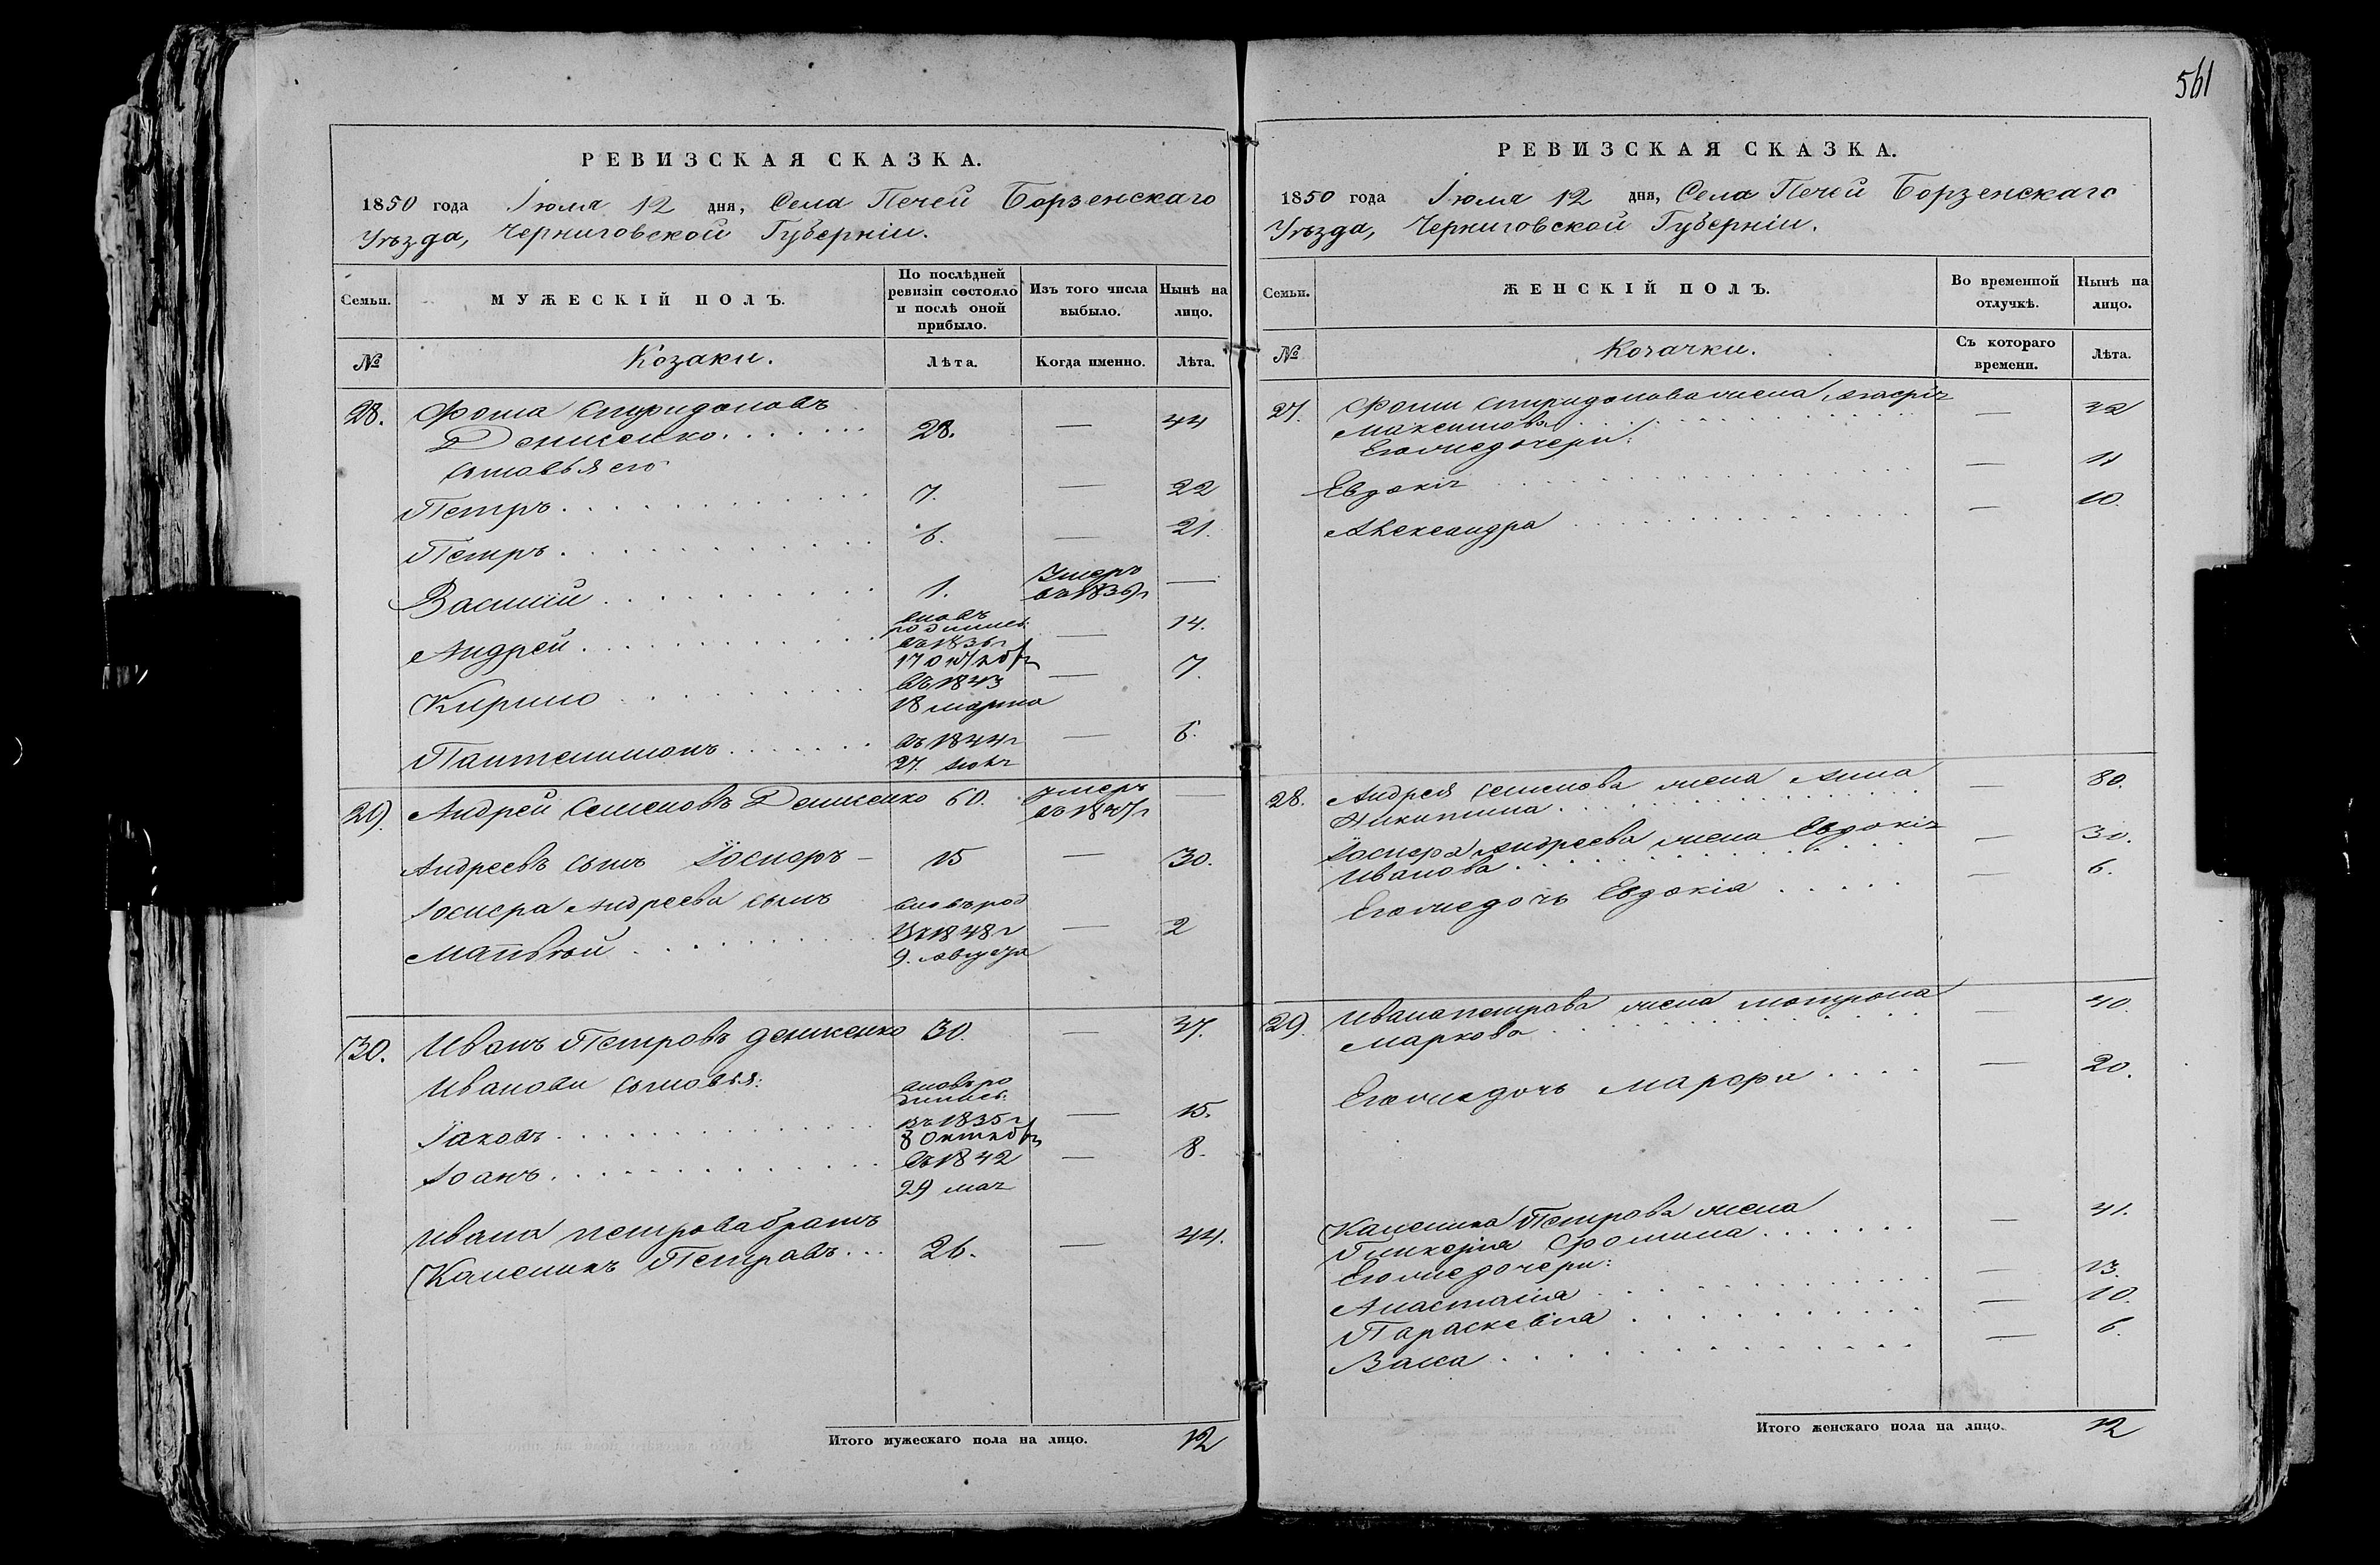 561
РЕВИЗСКАЯ СКАЗКА.
1850 года Іюля 12 дня, Села Печей Борзенскаго
Уѣзда, Черниговской Губерніи.
Семьи.
МУЖЕСКІЙ ПОЛЪ.
По послѣдней
ревизіи состояло
и послѣ оной
прибыло.
Изъ того числа
выбыло.
Нынѣ на
лицо.
№
Козаки.
Лѣта.
Когда именно.
Лѣта.
28. Фома Спиридоновъ
Денисенко 28. — 44
сыновья его
Петръ 7. — 22
Петръ 6. — 21.
Василій 1. Умеръ
въ 1836 г —
Андрей вновь
родились:
въ 1836 г
17 Октября — 14.
Кирило въ 1843
18 марта — 7.
Пантелимонъ въ 1844 г
27. — 6.
29. Андрей Семеновъ Денисенко 60. Умеръ
въ 1847 г —
Андреевъ сынъ Іосифъ 15 — 30.
Іосифа Андреева сынъ вновь род
Матвѣй въ 1848 г
9. Августа — 2
30. Иванъ Петровъ Денисенко 30. — 37.
Ивановы сыновья: вновь ро
дились:
Іаковъ въ 1835 г
8 Октября — 15.
Іоанъ въ 1842
29 мая — 8.
Ивана Петрова братъ
Калиникъ Петровъ 26. — 44.
Итого мужескаго пола на лицо. 12
РЕВИЗСКАЯ СКАЗКА.
1850 года Іюля 12 дня, Села Печей Борзенскаго
Уѣзда, Черниговской Губерніи.
Семьи.
ЖЕНСКІЙ ПОЛЪ.
Во временной
отлучкѣ.
Нынѣ на
лицо.
№
Козачки.
Съ котораго
времени.
Лѣта.
27. Фомы Спиридонова жена
Максимова — 42
Его же дочери:
Евдокія — 11
Александра — 10.
28. Андрея Семенова жена Анна
Никитина — 80.
Іосифа Андреева жена Евдокія
Иванова — 30.
Его же дочь Евдокія — 6.
29. Ивана Петрова жена Мотрона
Маркова — 40.
Его же дочь Марфа — 20.
Калиника Петрова жена
Гликерія Фомина — 41.
Его же дочери:
Анастасія — 13.
Параскевія — 10.
Васса — 6.
Итого женскаго пола на лицо. 12